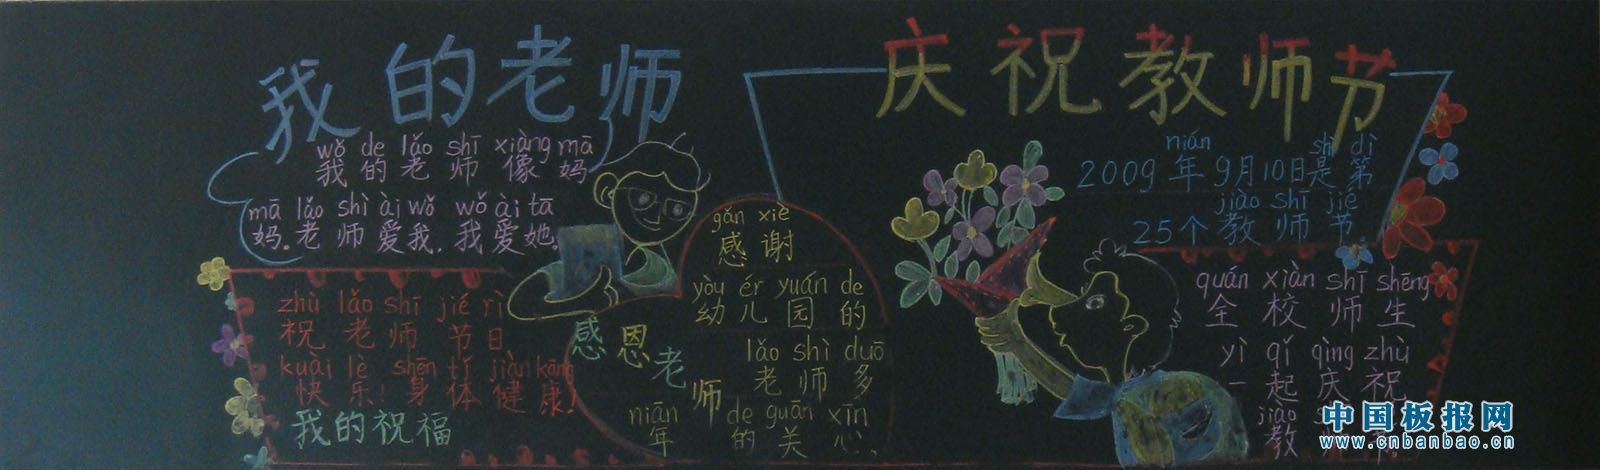 我的老师
wǒ de lǎo shī xiàng mā
我的老师像妈
mā lǎo shì ài wǒ wǒ ài tā
妈。老师爱我，我爱她。
zhù lǎo shī jié rì
祝老师节日
kuài lè shēn tǐ jiàn kāng
快乐！身体健康！
我的祝福
gǎn xiè
感谢
yòu ér yuán de
幼儿园的
lǎo shì duō
老师多
niān de guān xīn
年的关心、
感恩老师
庆祝教师节
nián shì dì
2009年9月10日是第
jiào shī jié
25个教师节。
quán xiàn shī shēng
全校师生
yì qǐ qìng zhù
一起庆祝
jiào
教
中国板报网
www.cnbanbao.cn